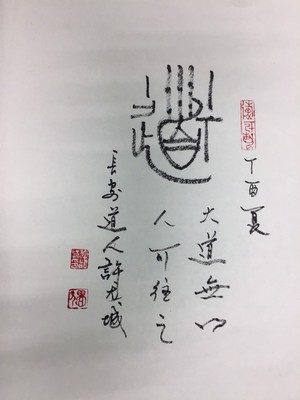 道
丁酉夏
大道無门
人可往之
長安道人許城